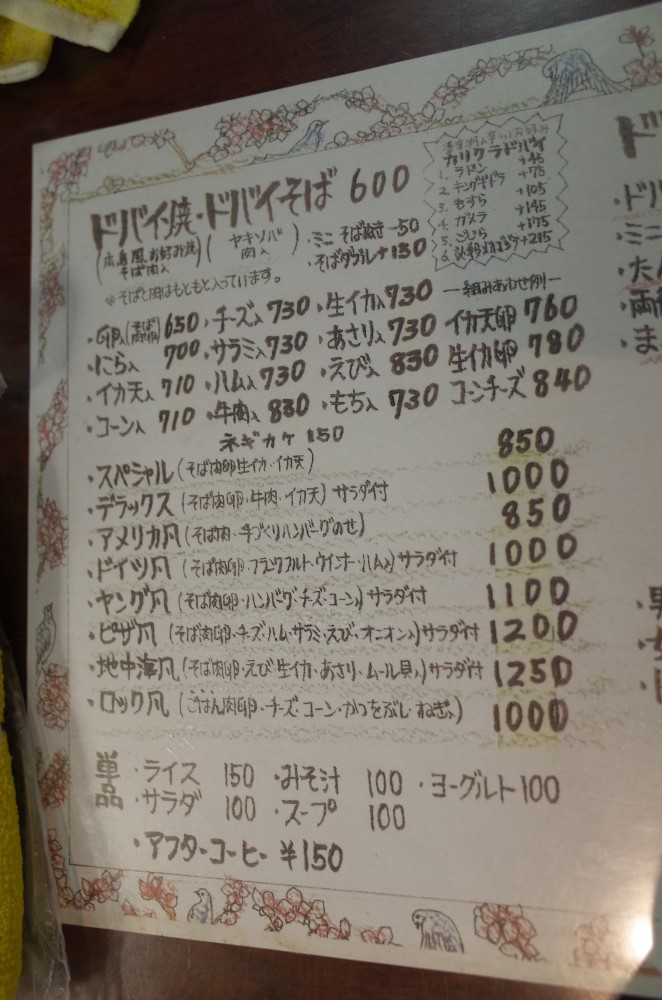 ドバイ焼・ドバイそば 600
(広島風お好み焼 そば肉入)
(ヤキソバ 肉入)
・ミニ そばぬき -50
・そばダブル +150
※そばと肉はもともと入っています。
カリクラドバイ +45
1. ラドン +75
2. キングギドラ +105
3. もすら +145
4. ガメラ +175
5. ごじら +215
6.
・卵入(そば肉卵) 650 ・チーズ入 730 ・生イカ入 730 ー組みあわせ例ー
・にら入 700 ・サラミ入 730 ・あさり入 730 イカ天卵 760
・イカ天入 710 ・ハム入 730 ・えび入 830 生イカ卵 780
・コーン入 710 ・牛肉入 830 ・もち入 730 コーンチーズ 840
ネギカケ 150
・スペシャル(そば肉卵生イカ・イカ天) 850
・デラックス(そば肉卵・牛肉・イカ天)サラダ付 1000
・アメリカ風(そば肉・手づくりハンバーグのせ) 850
・ドイツ風(そば肉卵・フランクフルト・ウインナー・ハム入)サラダ付 1000
・ヤング風(そば肉卵・ハンバーグ・チーズ・コーン入)サラダ付 1100
・ピザ風(そば肉卵・チーズ・ハム・サラミ・えび・オニオン入)サラダ付 1200
・地中海風(そば肉卵・えび・生イカ・あさり・ムール貝入)サラダ付 1250
・ロック風(ごはん肉卵・チーズ・コーン・かつをぶし・ねぎ入) 1000
単品 ・ライス 150 ・みそ汁 100 ・ヨーグルト 100
・サラダ 100 ・スープ 100
・アフターコーヒー ¥150
ド
・ドバ
・ミニ
・たん
・両
・ま